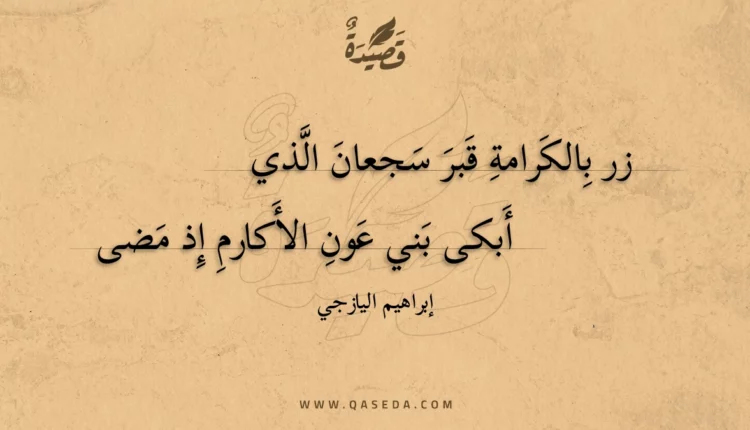 قَصِيدَةٌ
زر بِالكَرامةِ قَبرَ سَجعانَ الَّذي
أَبكى بَني عَونِ الأَكارمِ إِذ مَضى
إبراهيم اليازجي
WWW.QASEDA.COM